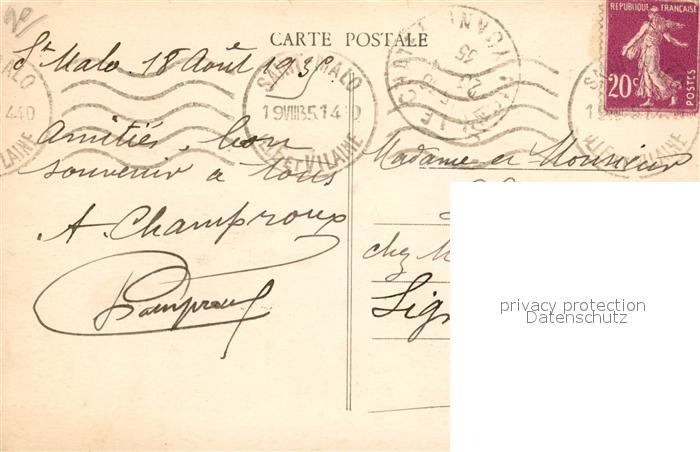 CARTE POSTALE
St Malo 18 Août 193
SAINT MALO
19 VIII 35.14 0
ILLE ET VILAINE
Amitiés, bon
souvenir à tous
A. Champroux
REPUBLIQUE FRANÇAISE
20c
POSTES
MALO
440
LAINE
Madame et Monsieur
chez M
Lig
privacy protection
Datenschutz